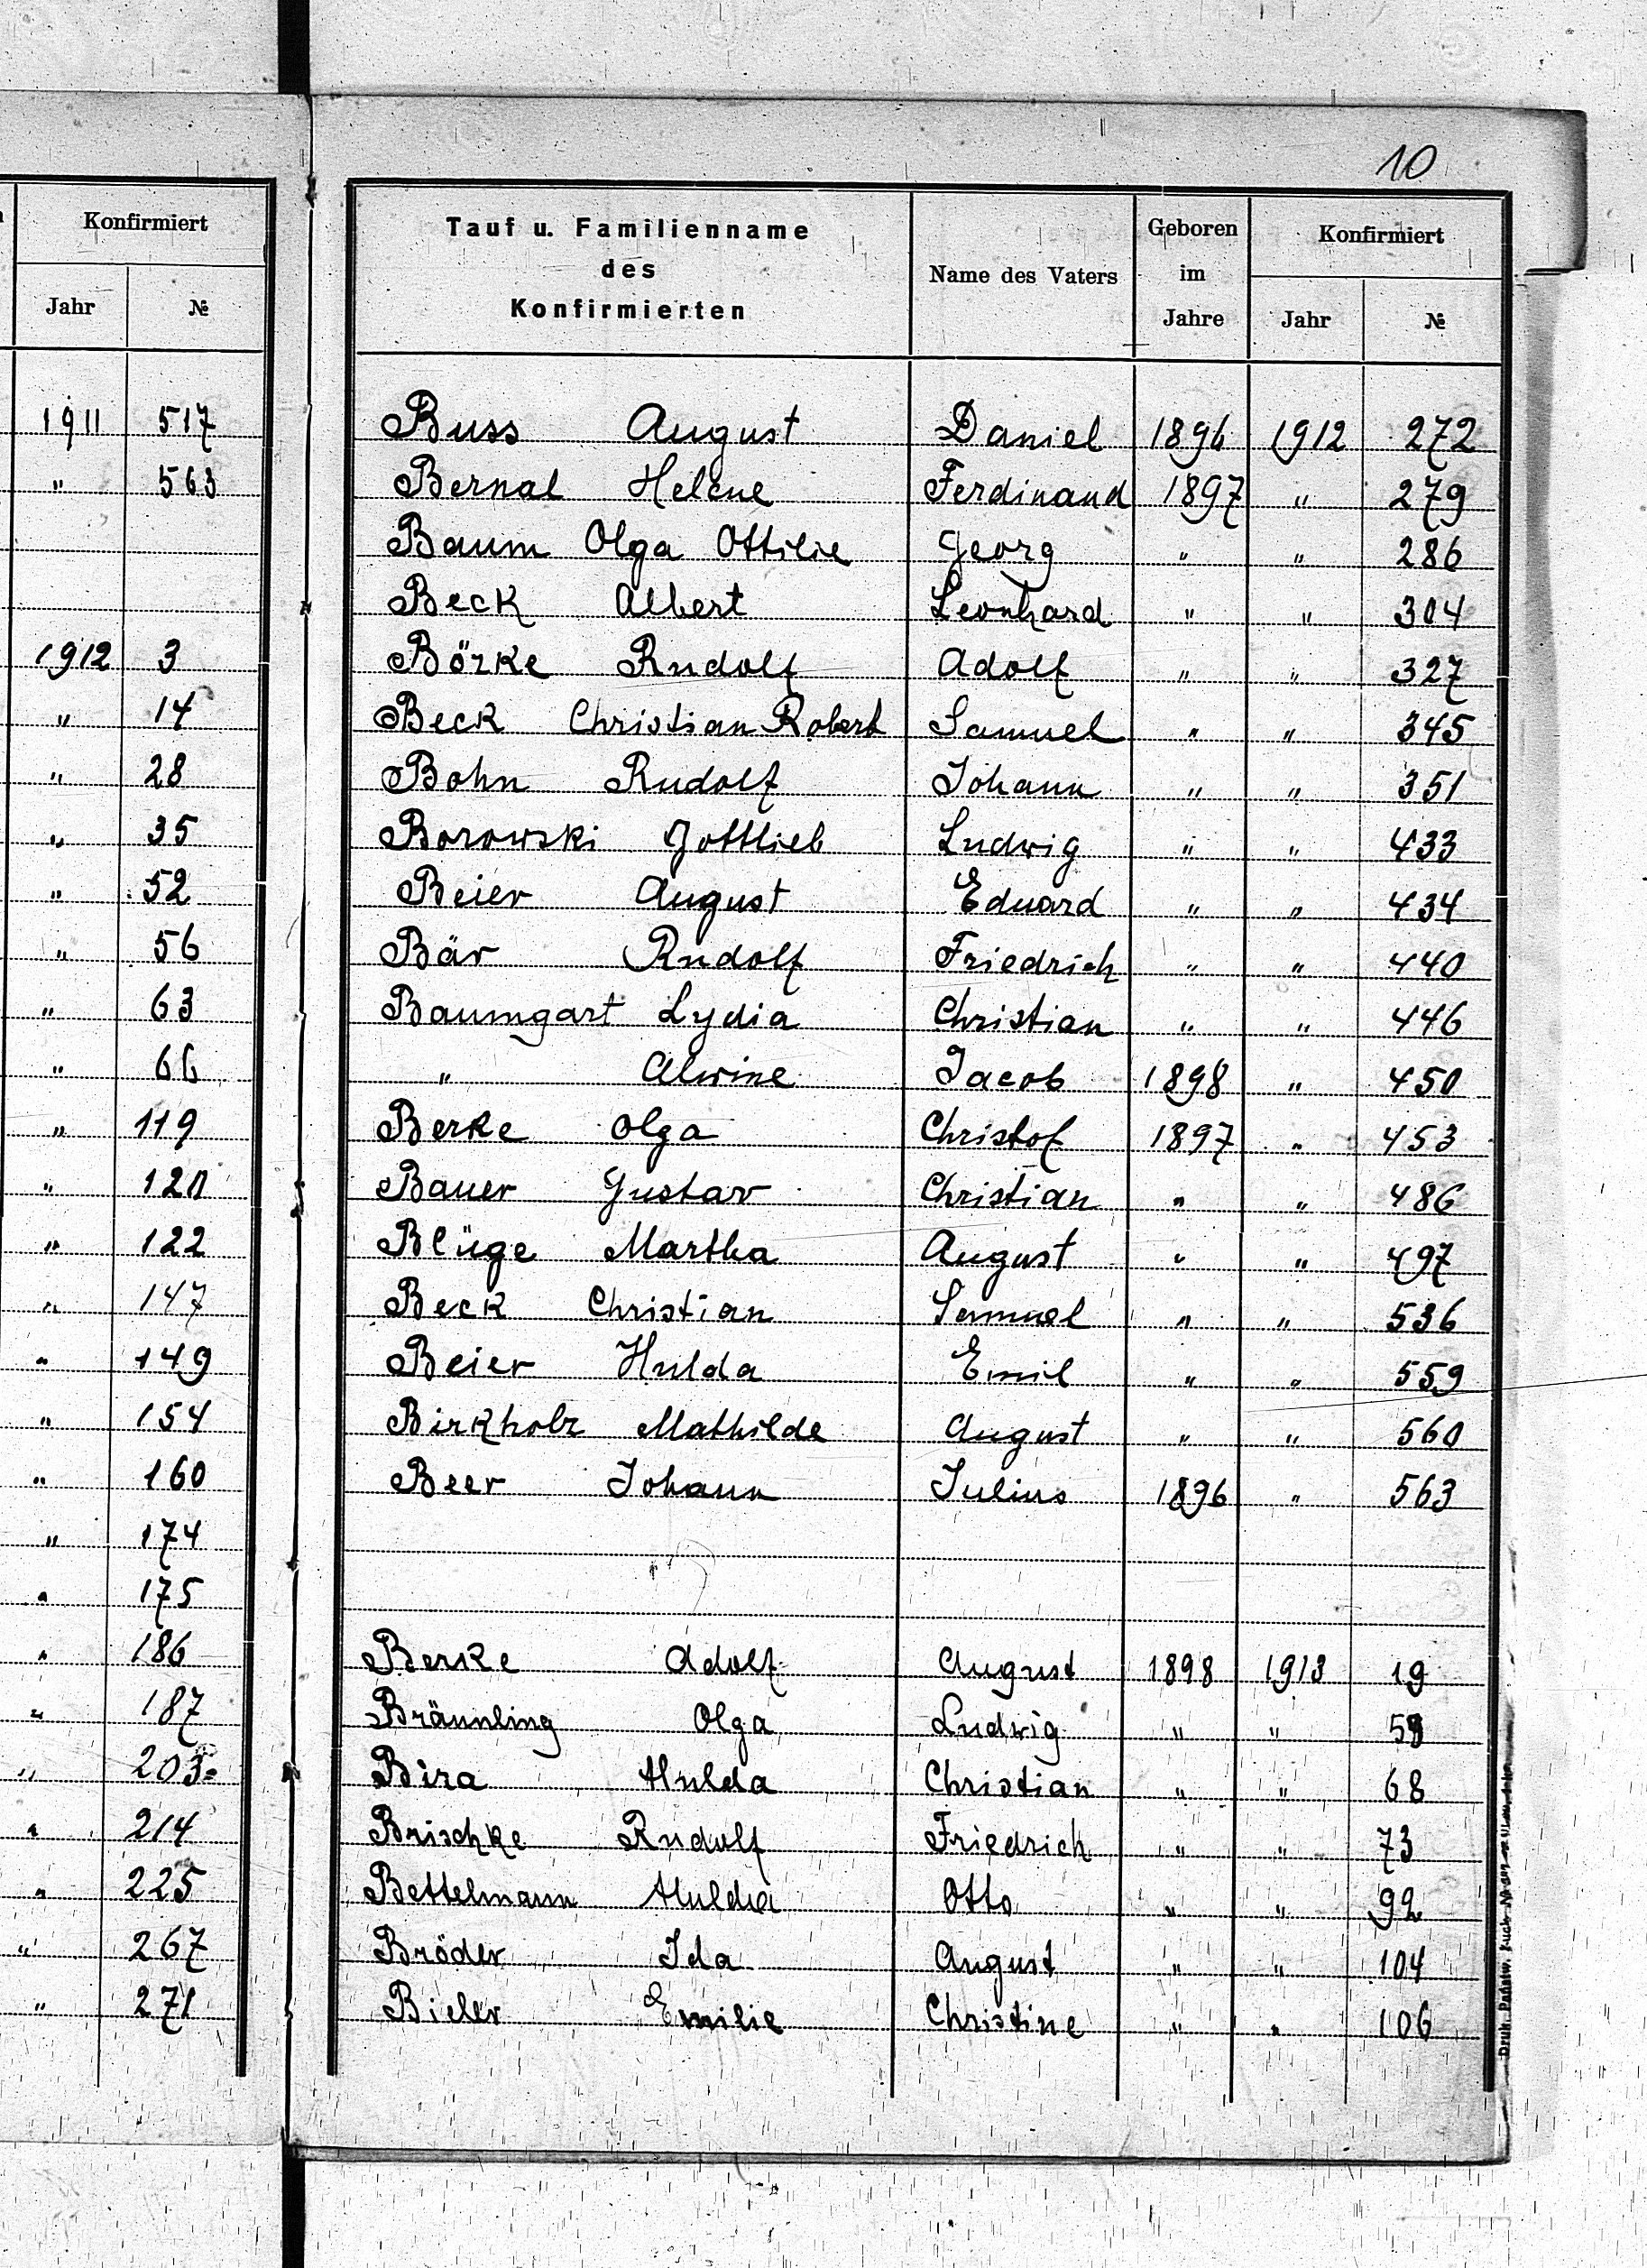 10
Konfirmiert
Jahr №
1911 517
" 563
1912 3
" 14
" 28
" 35
" 52
" 56
" 63
" 66
" 119
" 120
" 122
" 147
" 149
" 154
" 160
" 174
" 175
" 186
" 187
" 203
" 214
" 225
" 267
" 271
Tauf u. Familienname
des
Konfirmierten
Name des Vaters
Geboren
im
Jahre
Konfirmiert
Jahr №
Buss August Daniel 1896 1912 272
Bernal Helene Ferdinand 1897 " 279
Baum Olga Ottilie Georg " " 286
Beck Albert Leonhard " " 304
Börke Rudolf Adolf " " 327
Beck Christian Robert Samuel " " 345
Bohn Rudolf Johann " " 351
Borowski Gottlieb Ludwig " " 433
Beier August Eduard " " 434
Bär Rudolf Friedrich " " 440
Baumgart Lydia Christian " " 446
" Alwine Jacob 1898 " 450
Berke Olga Christof 1897 " 453
Bauer Gustav Christian " " 486
Blüge Martha August " " 497
Beck Christian Samuel " " 536
Beier Hulda Emil " " 559
Birkholz Mathilde August " " 560
Beer Johann Julius 1896 " 563
Berke Adolf August 1898 1913 19
Bräunling Olga Ludwig " "
Bira Hulda Christian " " 68
Brischke Rudolf Friedrich " " 73
Bettelmann Hulda Otto " " 92
Bröder Ida August " " 104
Bieler Emilie Christine " " 106